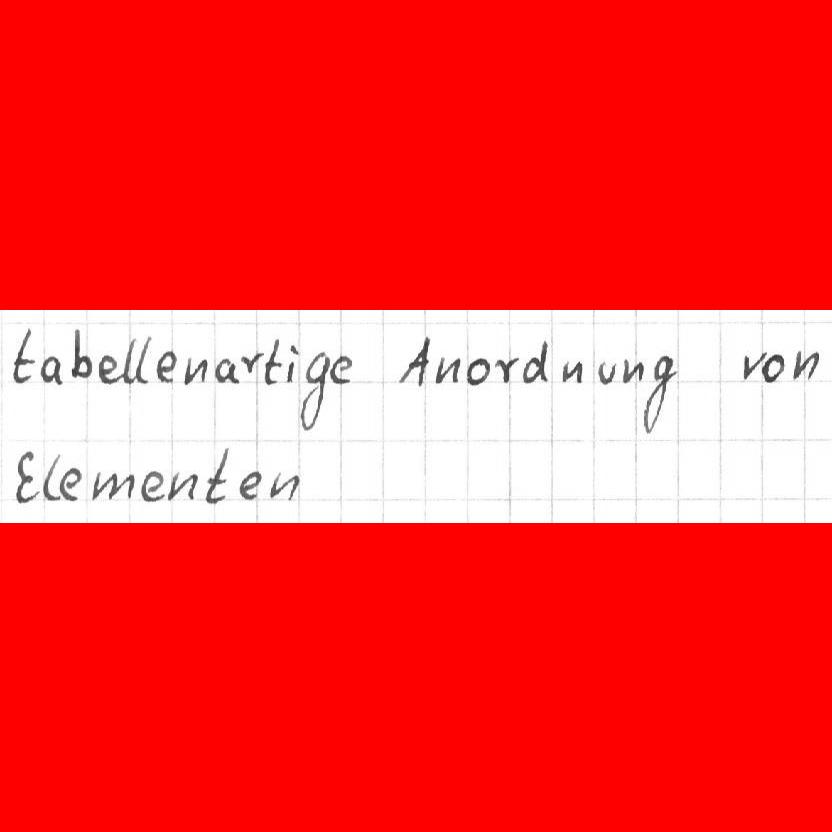 tabellenartige Anordnung von
Elementen